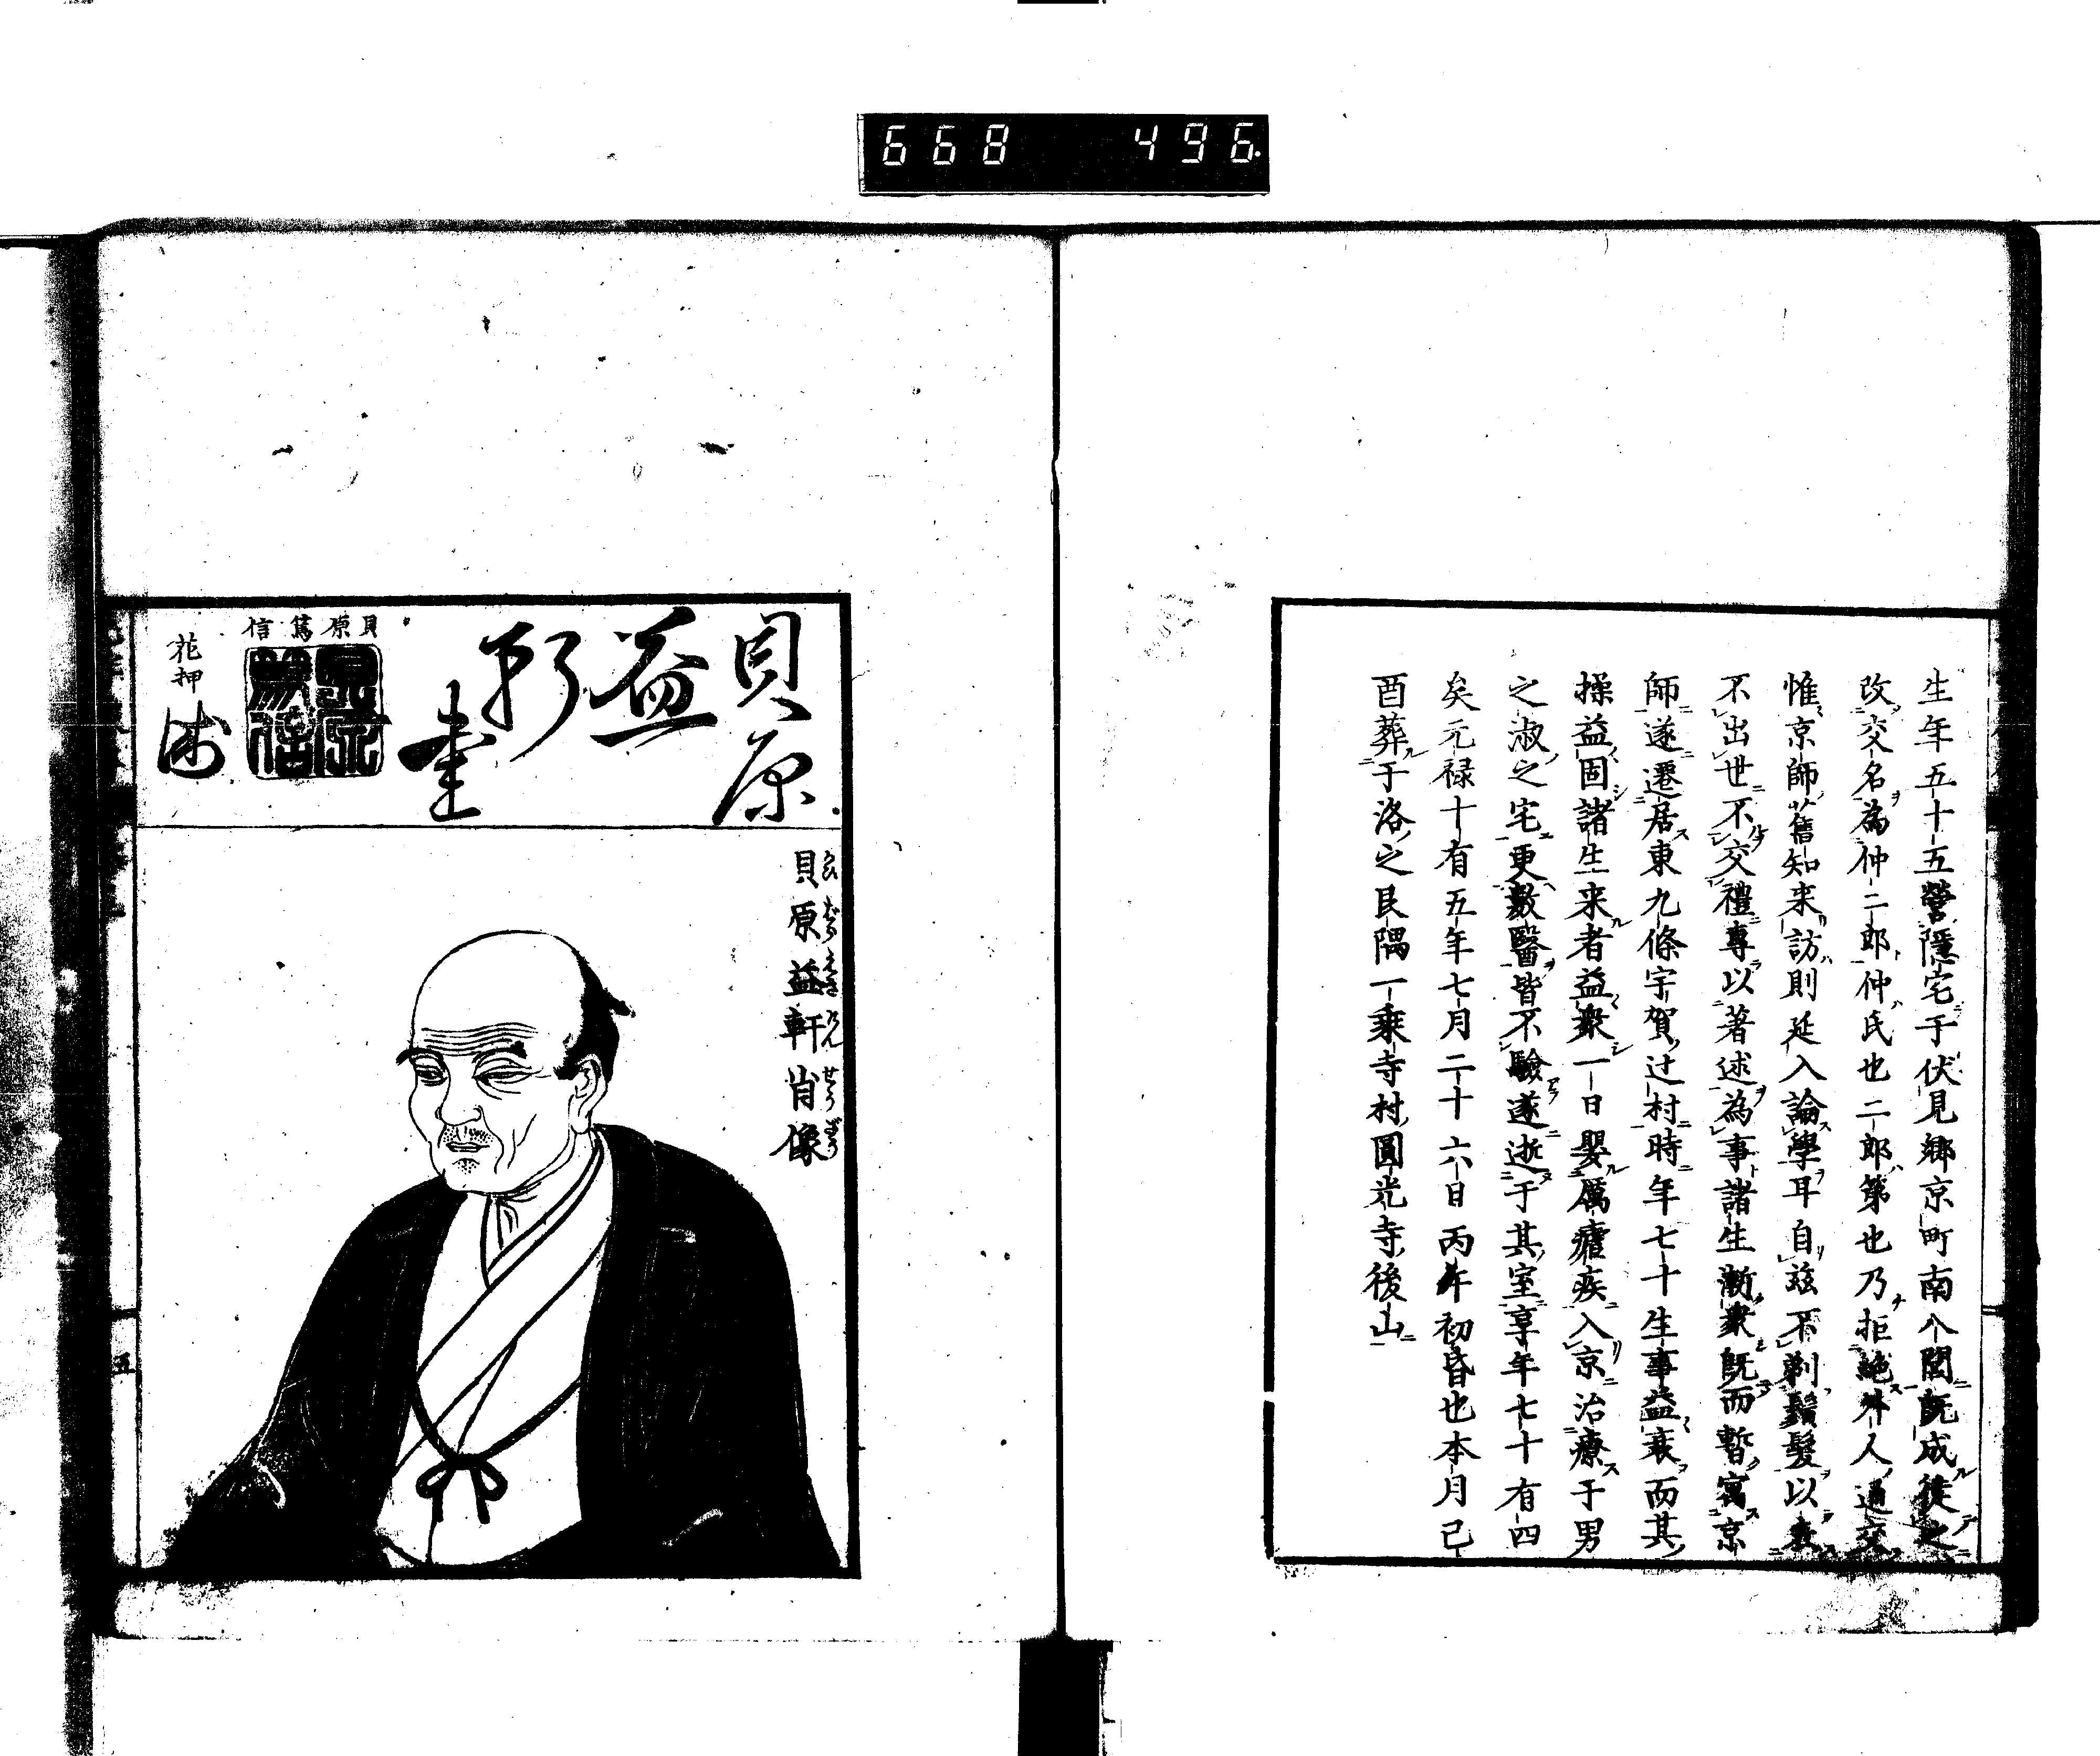 668 496
生年五十五營隱宅于伏見鄉京町南八閭既成徙之
改交名為仲二郎仲氏也二郎第也乃拒絶外人通交
惟京師舊知来訪則延入論學耳自玆不剃鬚髮以表
不出世不交禮專以著述為事諸生漸衆既而暫寓京
師遂遷居東九條宇賀辻村時年七十生事益衰而其
操益固諸生来者益衆一日嬰厲瘧疾入京治療于男
之淑之宅更數醫皆不驗遂逝于其室享年七十有四
矣元禄十有五年七月二十六日丙午初昏也本月己
酉葬于洛之艮隅一乘寺村圓光寺後山
貝原
益
軒
書
貝原篤信
花押
貝原益軒肖像
かいばらえきけんせうぞう
五